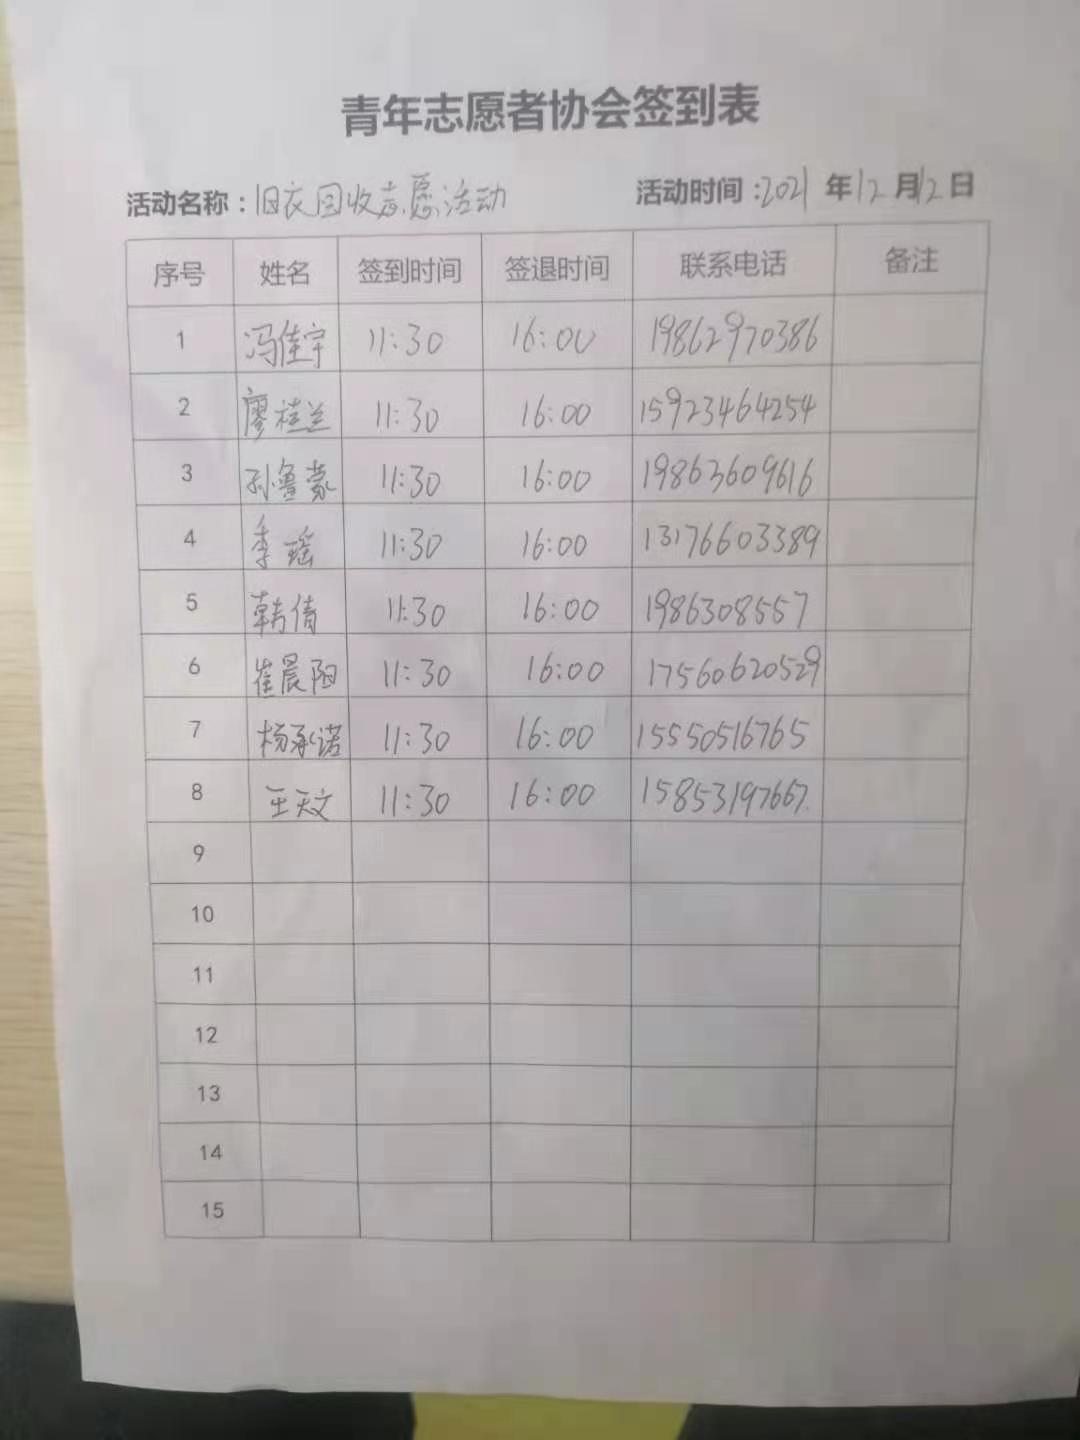 青年志愿者协会签到表
活动名称：旧衣回收志愿活动 活动时间：2021 年 12 月 12 日
序号 姓名 签到时间 签退时间 联系电话 备注
1 冯佳宇 11:30 16:00 19862970386
2 廖桂兰 11:30 16:00 15923464254
3 孙鲁蒙 11:30 16:00 19863609616
4 李瑶 11:30 16:00 13176603389
5 韩倩 11:30 16:00 1986308557
6 崔晨阳 11:30 16:00 17560620529
7 杨承诺 11:30 16:00 15550516765
8 王天文 11:30 16:00 15853197667
9
10
11
12
13
14
15